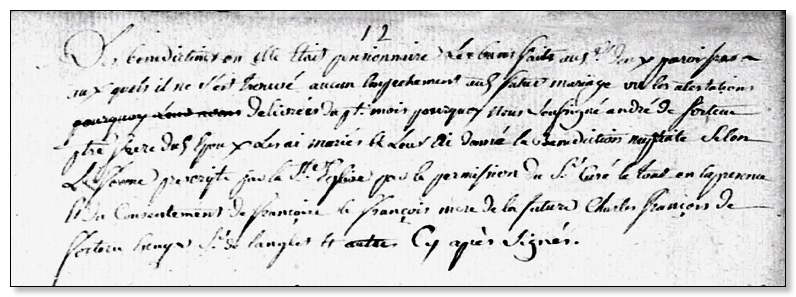 12
Des benedictines ou elle était pensionnaire Les bans faits aud. deux paroisses
aux quels il ne s'est trouvé aucun Empechement aud. futur mariage vu les atestations
pourquoy Leur avons delivrées du pt. mois pourquoy nous soussigné andré de sortem
ptre frere dud. Epoux Les ai mariés et Leur ai donné la benediction nuptiale selon
La forme prescritte par la Ste Eglise par la permission du Sr Curé le tout en la presence
et du Consentement de françoise le françois mere de la future Charles françois de
Sr de langles et autres Cy après signés.